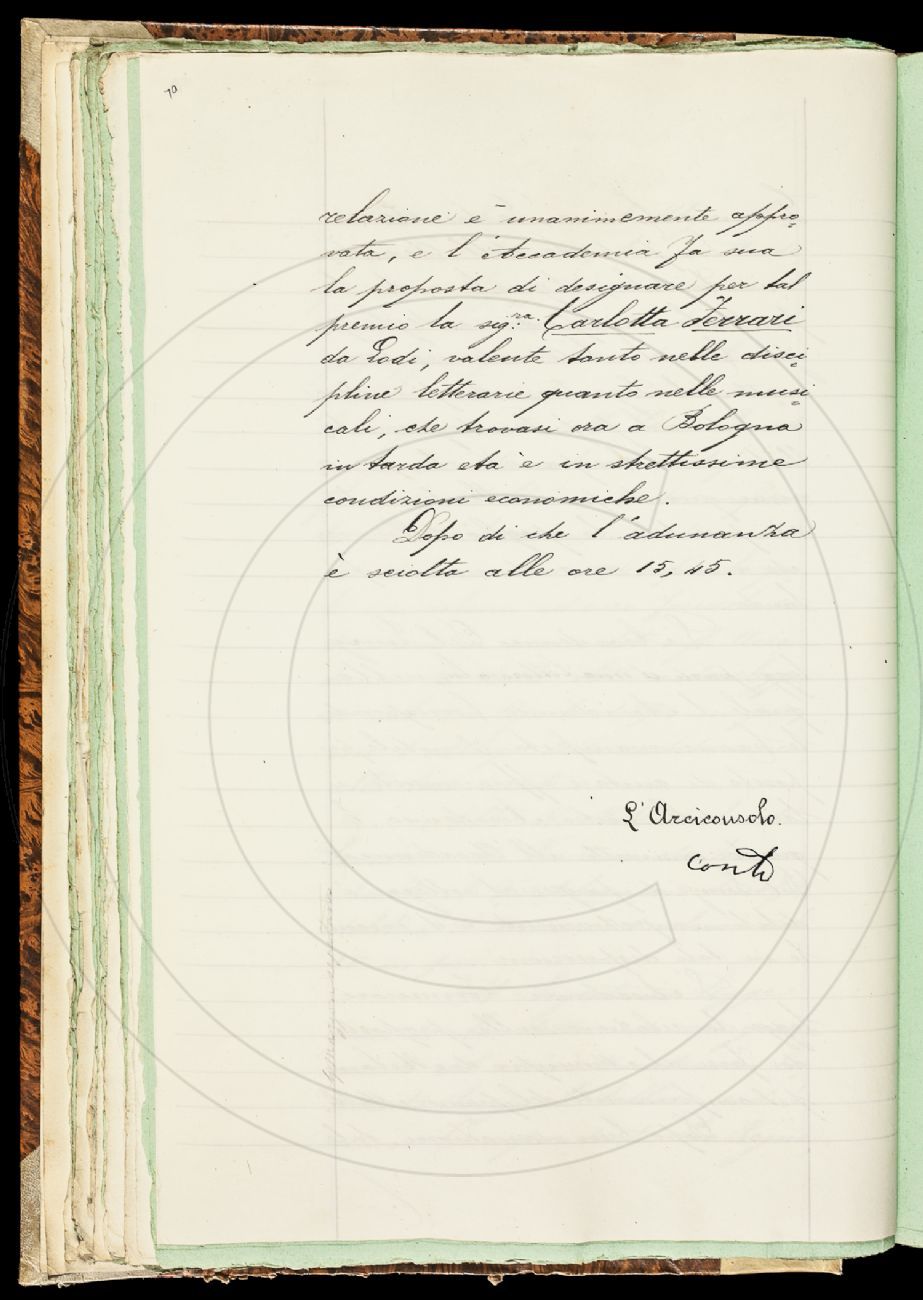 70
relazione è unanimemente appro=
vata, e l'Accademia fa sua
la proposta di designare per tal
premio la sig.ra Carlotta Ferrari
da Lodi, valente tanto nelle disci=
pline letterarie quanto nelle musi=
cali, che trovasi ora a Bologna
in tarda età e in strettissime
condizioni economiche.
Dopo di che l'adunanza
è sciolta alle ore 15,45.
L'Arciconsolo.
Conti